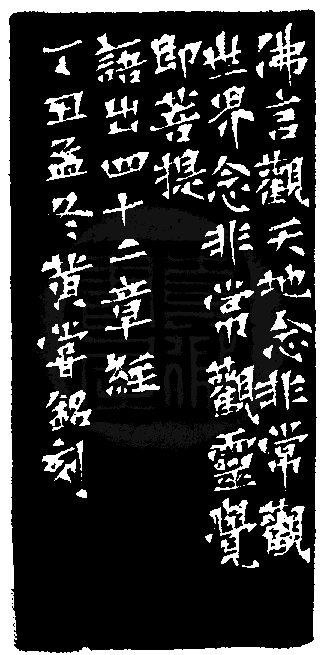 佛言觀天地念非常觀
世界念非常觀靈覺
即菩提
語出四十二章經
丁丑孟冬黃嘗銘刻